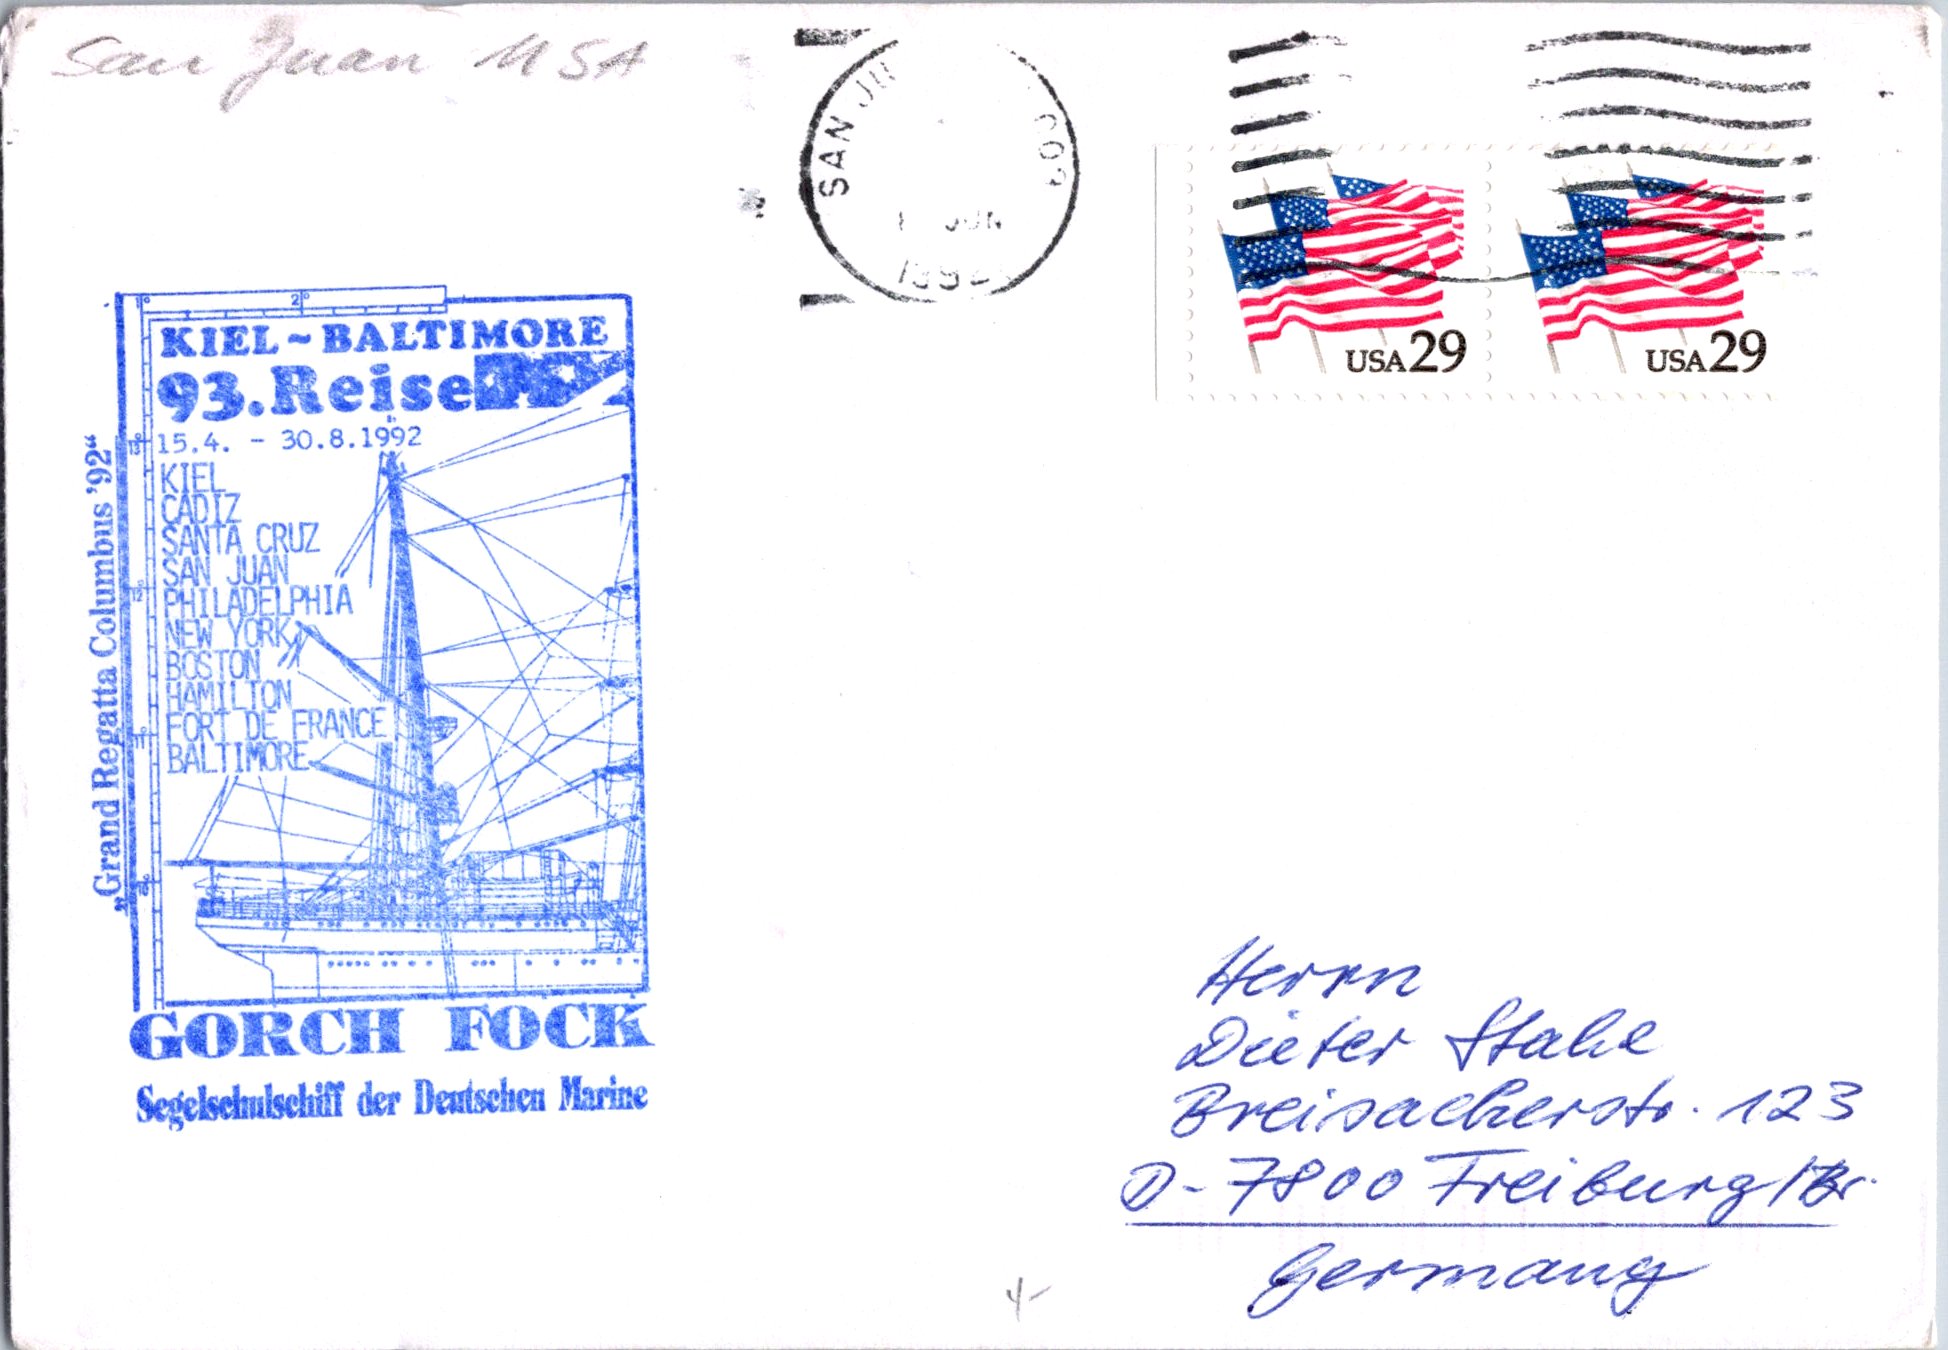 San Juan USA
SAN JU 009
JUN
1992
USA 29
USA 29
1° 2°
KIEL ~ BALTIMORE
93. Reise
15.4. - 30.8.1992
KIEL
CADIZ
SANTA CRUZ
SAN JUAN
PHILADELPHIA
NEW YORK
BOSTON
HAMILTON
FORT DE FRANCE
BALTIMORE
„Grand Regatta Columbus '92“
13°
12°
11°
GORCH FOCK
Segelschulschiff der Deutschen Marine
Herrn
Dieter Stahl
Breisacherstr. 123
D-7800 Freiburg/Br.
Germany